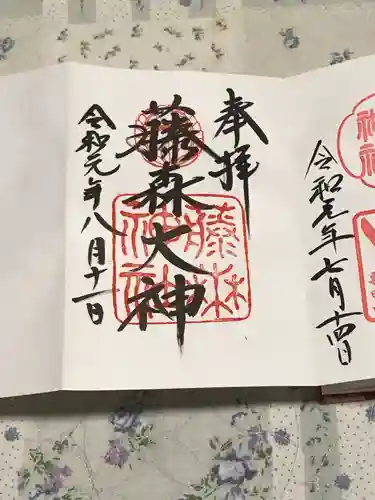 令和元年七月十四日
奉拝
藤森大神
藤森
神社
令和元年八月十一日